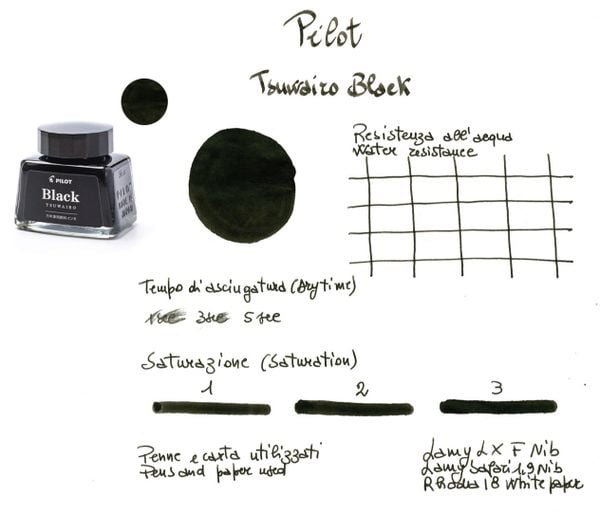 Pilot
Tsuwairo Black
PILOT
Black
TSUWAIRO
Resistenza all'acqua
Water resistance
Tempo di asciugatura (Dry time)
1sec 3sec 5sec
Saturazione (Saturation)
1 2 3
Penne e carta utilizzati
Pens and paper used
Lamy LX F Nib
Lamy Safari 1,9 Nib
Rhodia 18 White paper